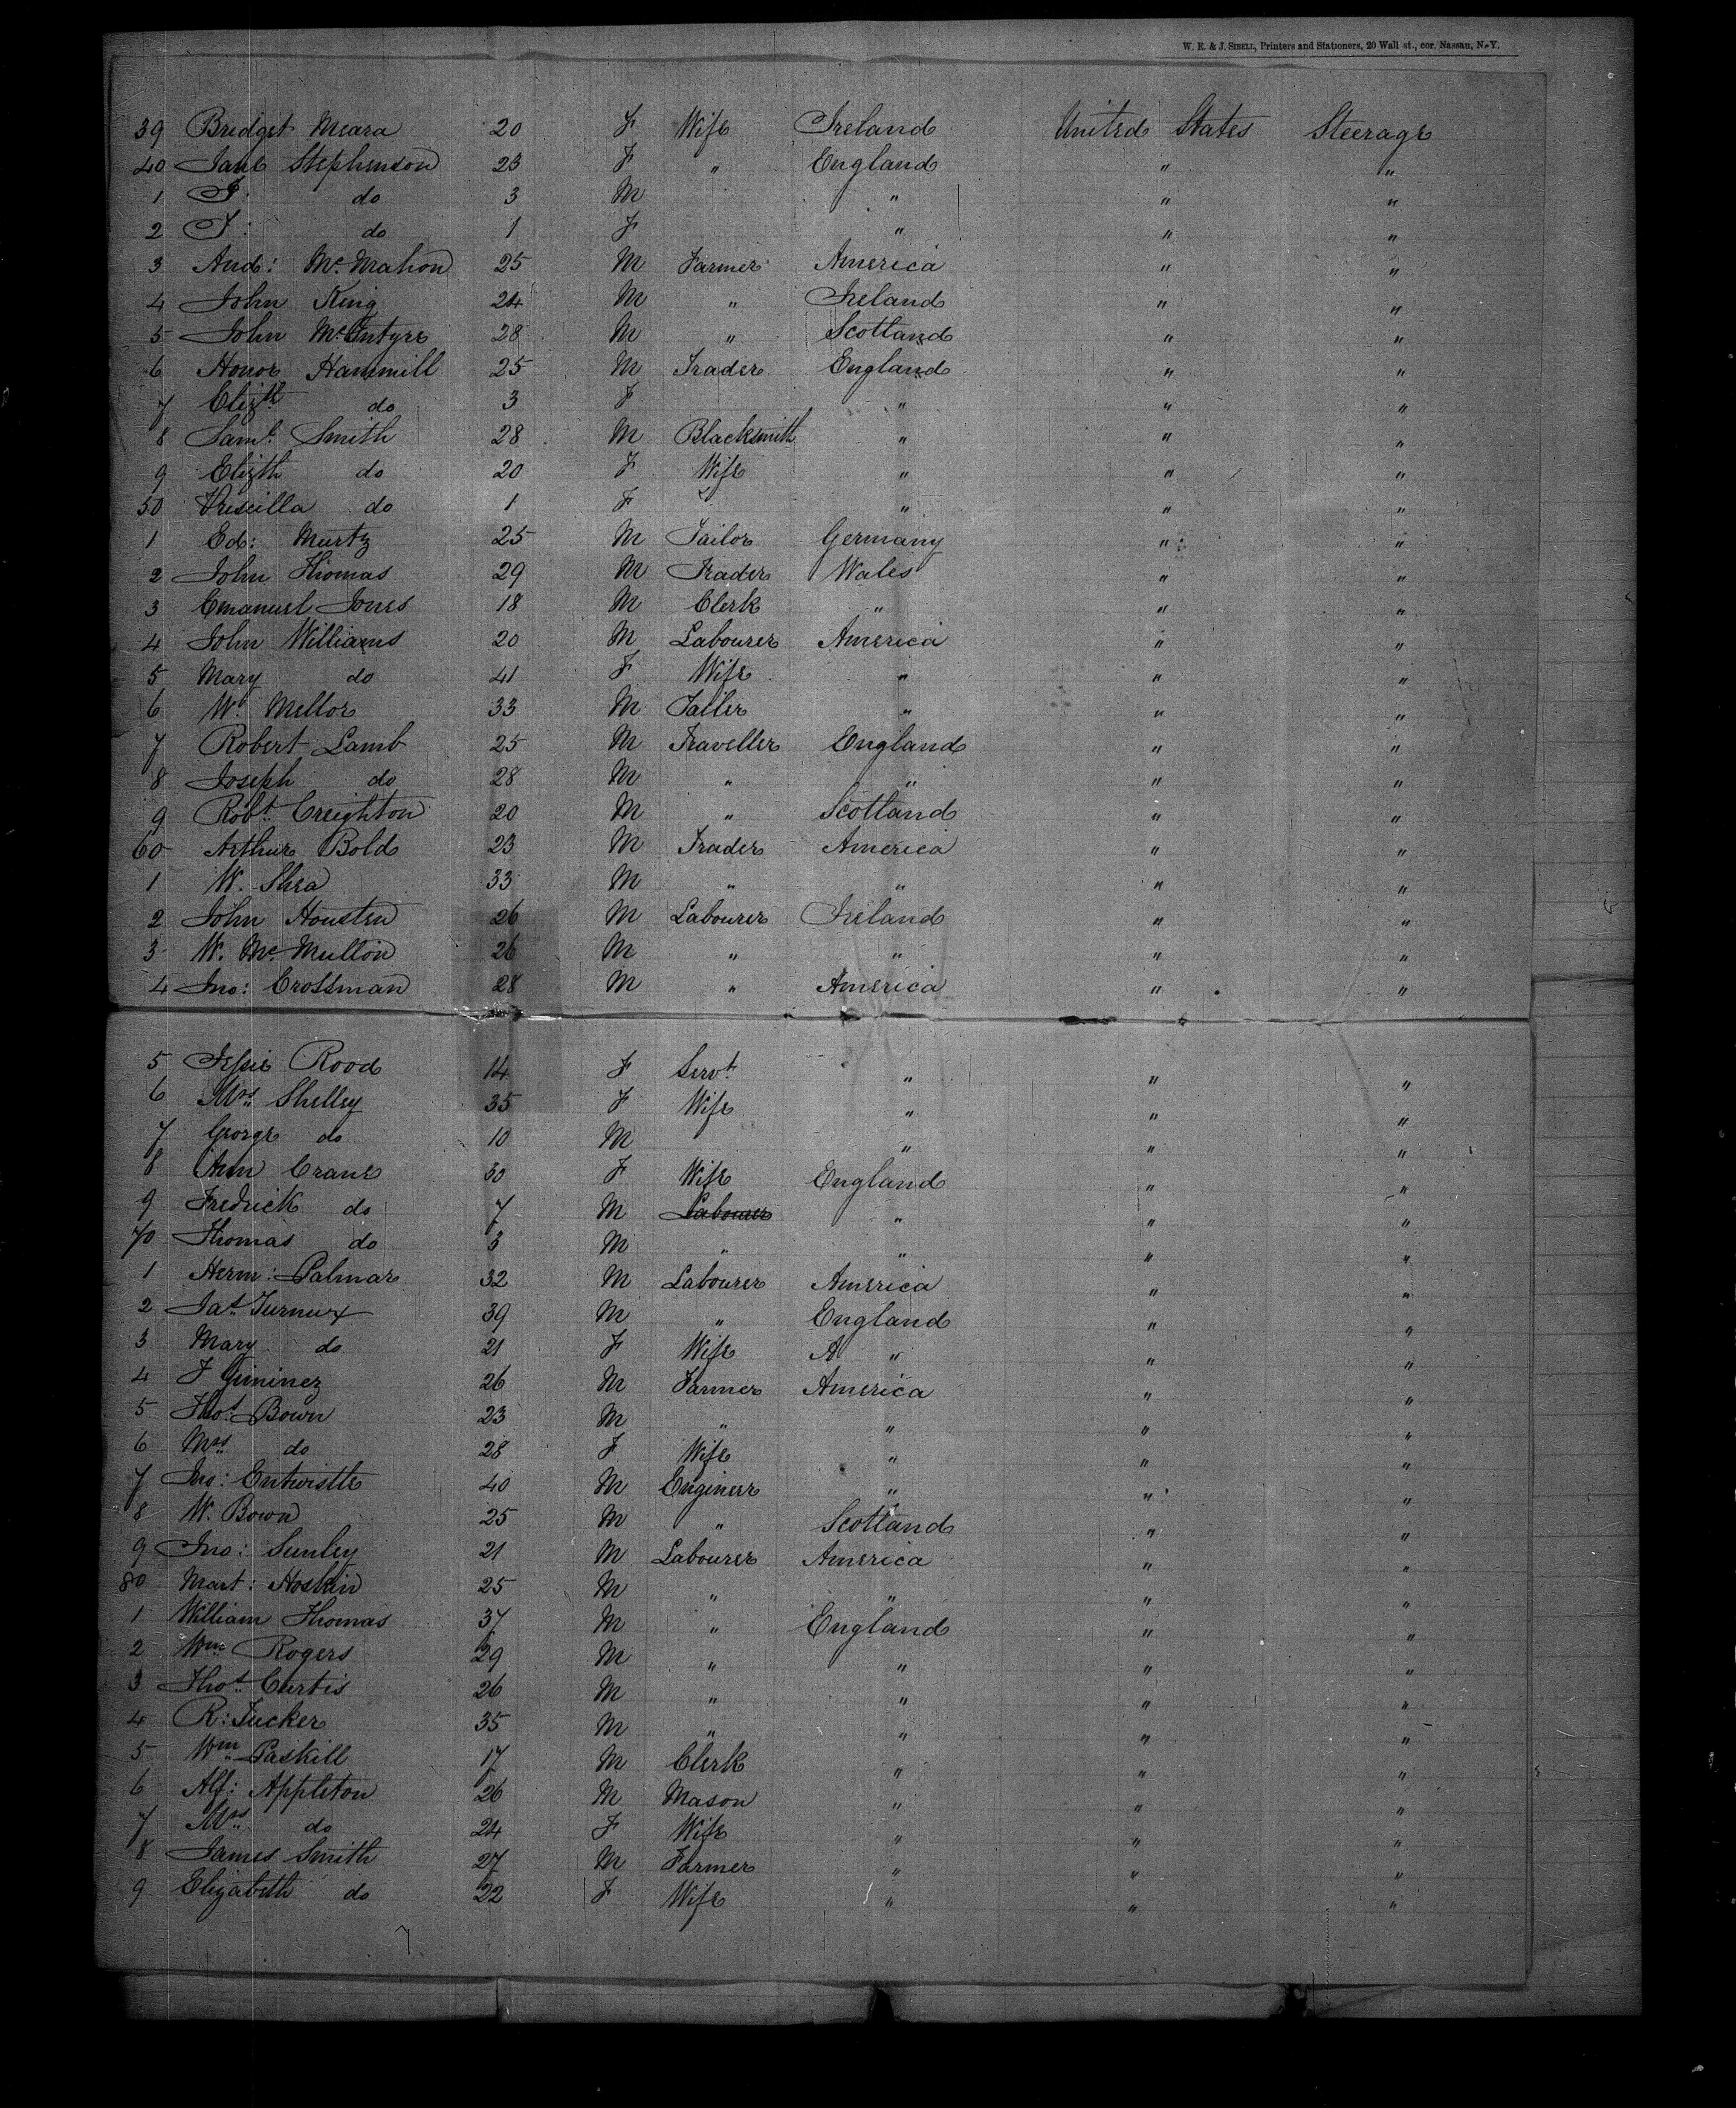 W. E. & J. SIBELL, Printers and Stationers, 20 Wall st., cor. Nassau, N.Y.
39 Bridget Meara 20 F Wife Ireland United States Steerage
40 Jane Stephenson 23 F " England " "
1 J: do 3 M " " "
2 J: do 1 F " " "
3 And: McMahon 25 M Farmer America " "
4 John King 24 M " Ireland " "
5 John McIntyre 28 M " Scotland " "
6 Honor Hammill 25 M Trader England " "
7 Elizth do 3 F " " "
8 Saml. Smith 28 M Blacksmith " " "
9 Elizth do 20 F Wife " " "
50 Priscilla do 1 F " " "
1 Ed: Murtz 25 M Tailor Germany " "
2 John Thomas 29 M Trader Wales " "
3 Emanuel Jones 18 M Clerk " " "
4 John Williams 20 M Labourer America " "
5 Mary do 41 F Wife " " "
6 W. Mellor 33 M " " "
7 Robert Lamb 25 M Traveller England " "
8 Joseph do 28 M " " " "
9 Robt. Creighton 20 M " Scotland " "
60 Arthur Bold 23 M Trader America " "
1 W. Shea 33 M " " " "
2 John Housten 26 M Labourer Ireland " "
3 W. McMullon 26 M " " " "
4 Jno: Crossman 28 M " America " "
5 Jessie Rood 14 F Servt. " " "
6 Mrs. Shelley 35 F Wife " " "
7 George do 10 M " " "
8 Ann Crane 30 F Wife England " "
9 Fredrick do 7 M Labourer " " "
70 Thomas do 3 M " " " "
1 Herm: Palmar 32 M Labourer America " "
2 Jas. 39 M " England " "
3 Mary do 21 F Wife A " " "
4 J Giminez 26 M Farmer America " "
5 Thos. Bown 23 M " " " "
6 Mrs. do 28 F Wife " " "
7 Jno: Entwistle 40 M Engineer " " "
8 W. Bown 25 M " Scotland " "
9 Jno: Sunley 21 M Labourer America " "
80 Mart: Hoskin 25 M " " " "
1 William Thomas 37 M " England " "
2 Wm. Rogers 29 M " " " "
3 Thos. Curtis 26 M " " " "
4 R: Tucker 35 M " " " "
5 Wm. Paskill 17 M Clerk " " "
6 Alf: Appleton 26 M Mason " " "
7 Mrs. do 24 F Wife " " "
8 James Smith 27 M Farmer " " "
9 Elizabeth do 22 F Wife " " "